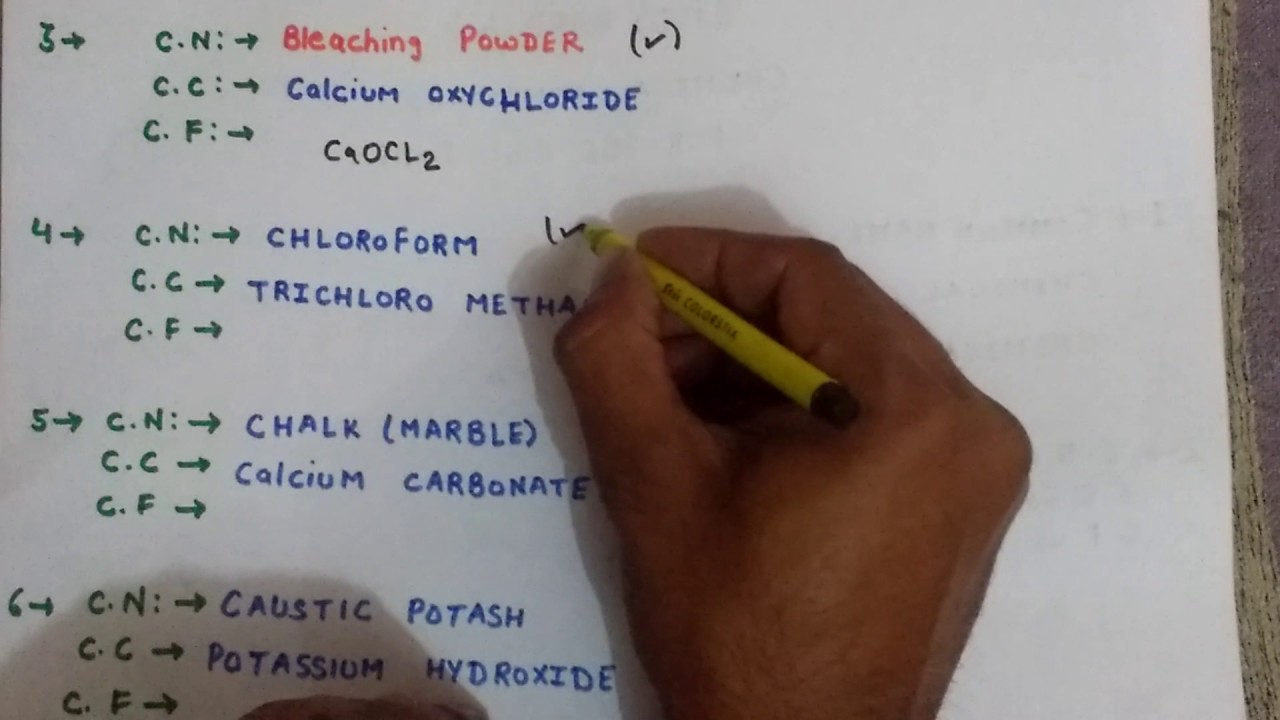 3→ C.N:→ Bleaching POWDER (✓)
C.C:→ Calcium OXYCHLORIDE
C.F:→ CaOCL₂
4→ C.N:→ CHLOROFORM (✓
C.C→ TRICHLORO METHA
C.F→
5→ C.N:→ CHALK (MARBLE)
C.C→ Calcium CARBONATE
C.F→
6→ C.N:→ CAUSTIC POTASH
C.C→ POTASSIUM HYDROXIDE
C.F→
COLORSTIX